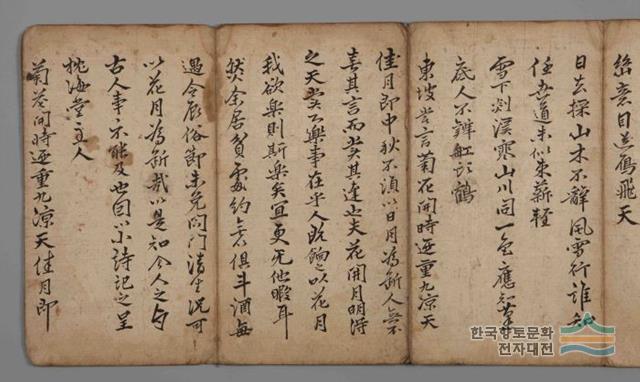 意目送鴈飛天
日去探山木不辭風雪行誰知
任吾道未似束薪輕
雪下剡溪寒山川同一色應知
底人不辨缸頭鶴
東坡嘗言菊花開時迺重九凉天
佳月即中秋不須以日月為斷人無不
喜其言而賞其達也夫花開月明得
之天賞心樂事在乎人既餉之以花月
我欲樂則斯樂矣宜更无他暇耳
然余居貧處約俱斗酒每
遇令辰俗節未免閉門清坐況可
以花月為斷哉以是知今人之與
古人事不能及也因以小詩記之呈
海堂主人
菊花開時迺重九凉天佳月即
한국향토문화
전자대전